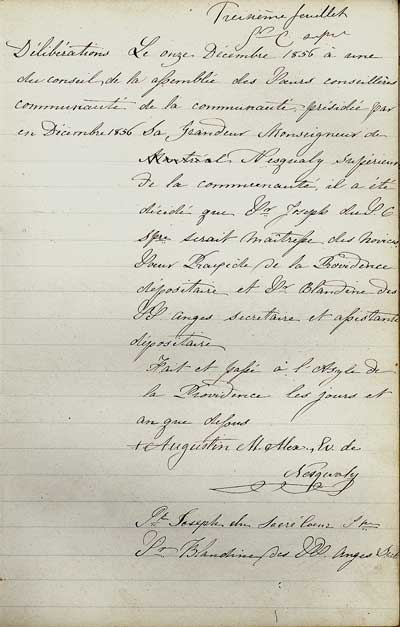 Treisième feuillet
S. C. supr
Délibérations Le onze Décembre 1856 à une
du conseil de la assemblée des Sœurs conseillères
communauté de la communauté présidée par
en Décembre 1856 Sa Grandeur Monseigneur de
Montréal Nesqualy Supérieur
de la communauté, il a été
décidé que Sr Joseph du S. C.
Spre serait maitresse des novices
Sœur Praxède de la Providence
dépositaire et Sr Blandine des
SS. anges secretaire et assistante
dépositaire
Fait et passé à l'Asyle de
la Providence les jours et
an que dessus
+ Augustin M. Alex, Ev. de
Nesqualy
Sr Joseph du Sacré Coeur
Sr Blandine des SS. Anges Sect